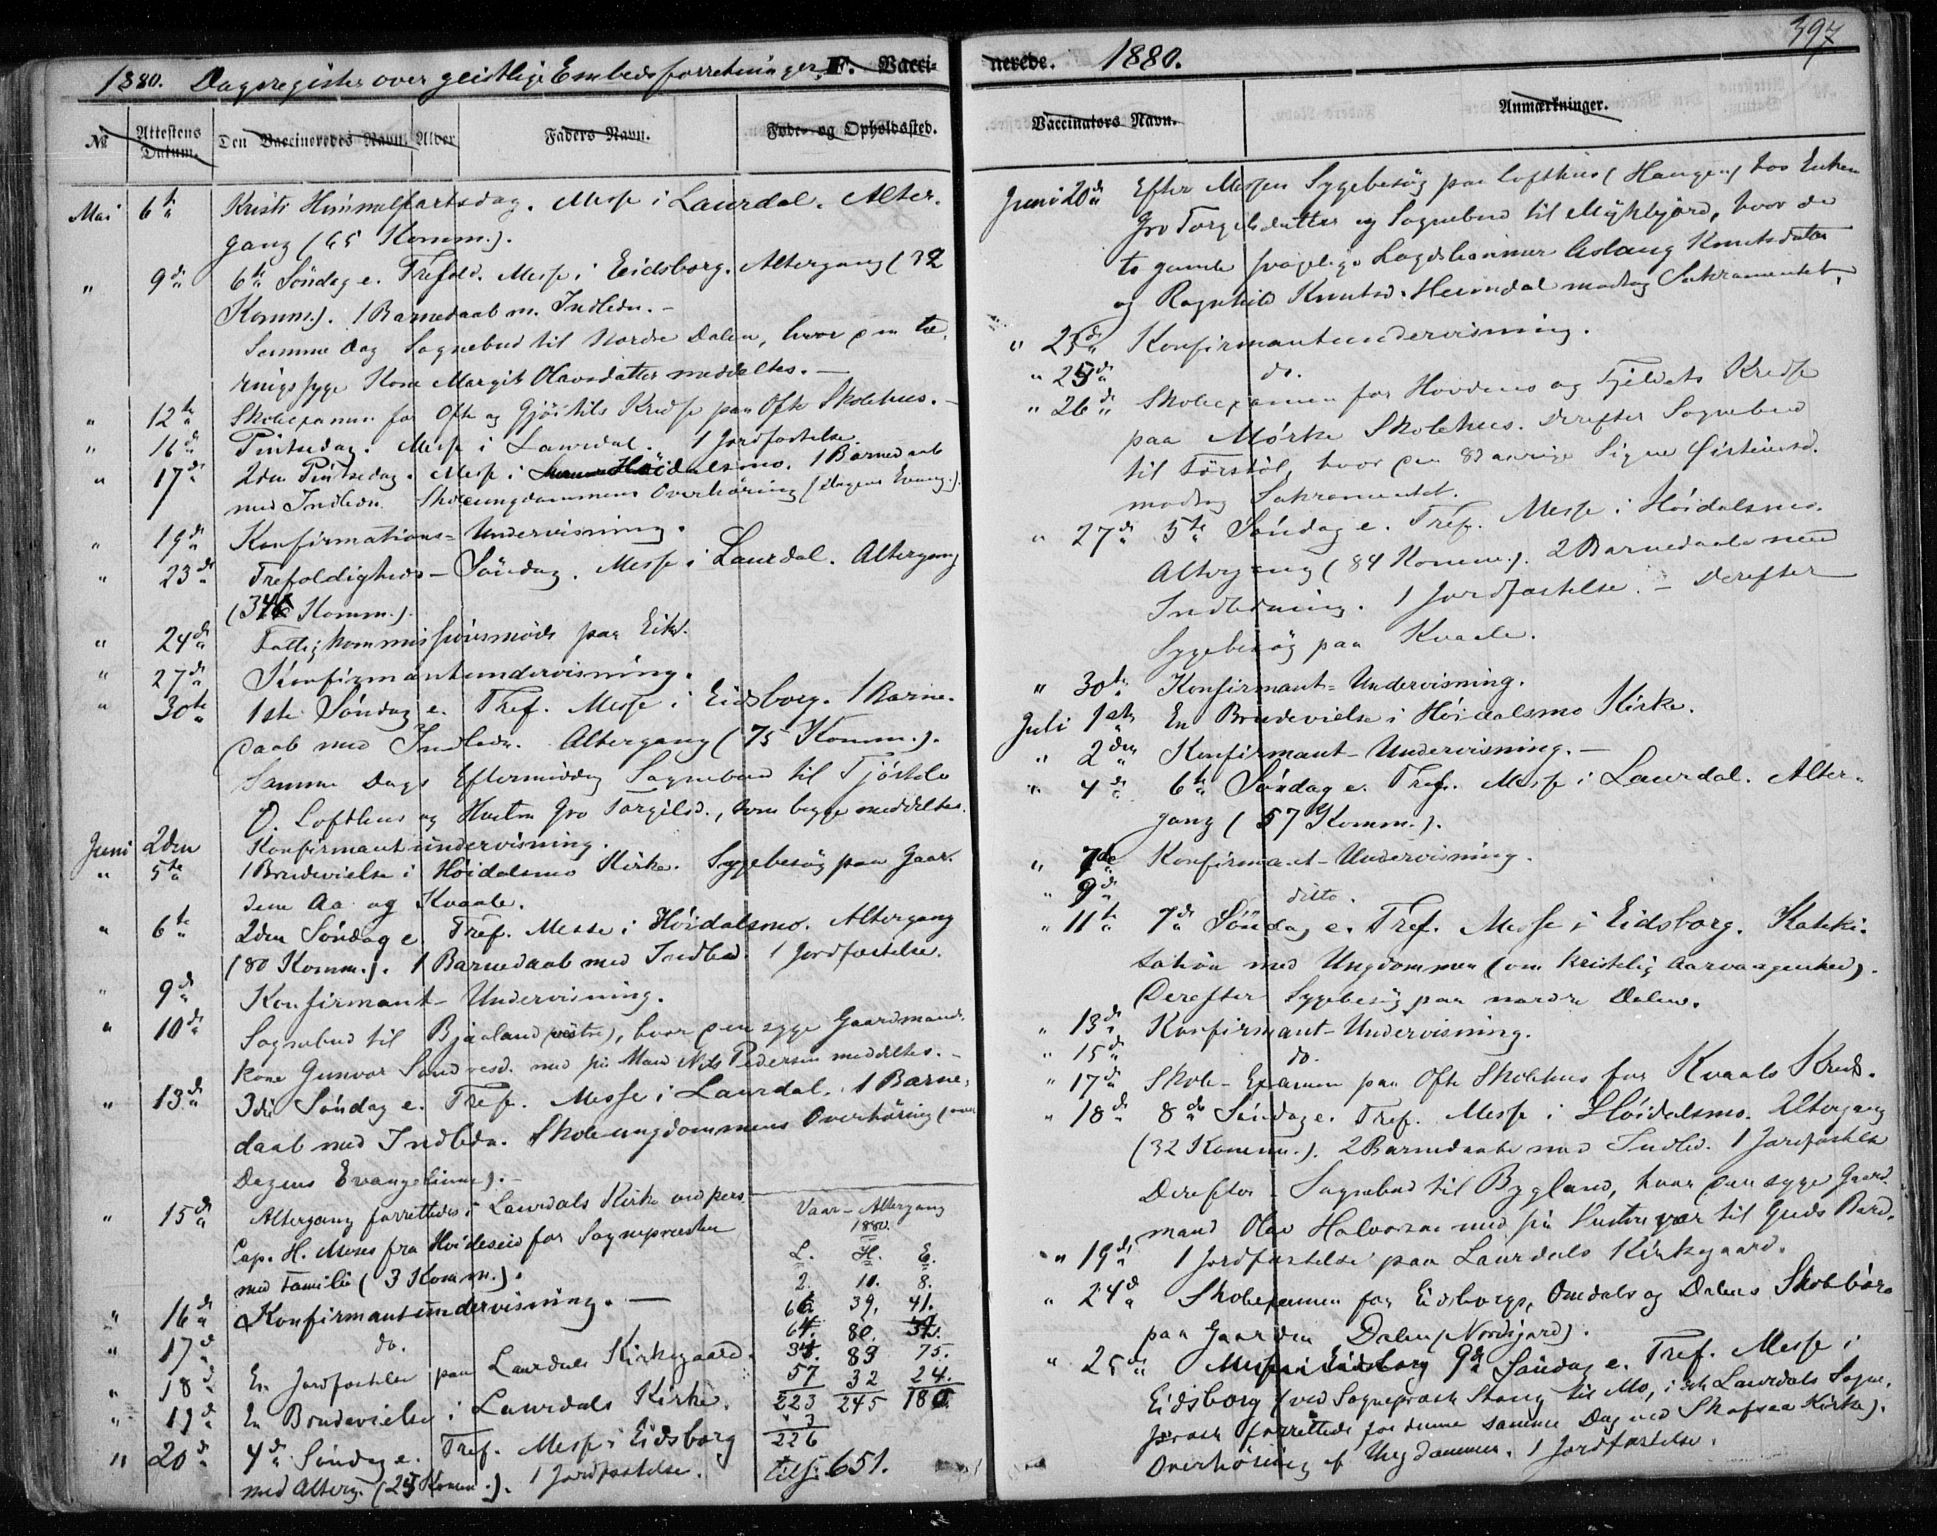 1880. Dagsregister over geistlige Embedsforretninger. F. Vacci-
No Attestens Datum. Den Vaccineredes Navn. Alder Faders Navn. Føde- og Opholdssted.
Mai 6te Kristi Himmelfartsdag. Messe i Laurdal. Alter-
gang (65 Komm.).
" 9de 6te Søndag e. Trefold. Messe i Eidsborg. Altergang (32
Komm.). 1 Barnedaab m. Indledn. -
Samme Dag Sognebud til Nordre Dalen, hvor den tæ-
ringssyge Kone Margit Olavsdatter meddeltes. -
" 12te Skoleexamen for Ofte og Gjøitils Kredse paa Ofte Skolehus. -
" 16de Pintsedag. Messe i Laurdal. 1 Jordfæstelse.
" 17de 2den Pintsedag. Messe i Høidalsmo. 1 Barnedaab
med Indledn. Skoleungdommens Overhøring (Dagens Evang.).
" 19de Konfirmations-Undervisning.
" 23de Trefoldigheds-Søndag. Messe i Laurdal. Altergang
(34 Komm.).
" 24de Fattigkommissionsmøde paa Eik.
" 27de Konfirmantundervisning.
" 30te 1ste Søndag e. Tref. Messe i Eidsborg. 1 Barne-
daab med Indledn. Altergang (75 Komm.).
Samme Dags Eftermiddag Sognebud til Tjøstolv
O. Lofthus og Hustru Gro Torgilsd., som begge meddeltes.
Juni 2den Konfirmantundervisning.
" 5te 1 Brudevielse i Høidalsmo Kirke. Sygebesøg paa Gaar-
dene Aa og Kvaale.
" 6te 2den Søndag e. Tref. Messe i Høidalsmo. Altergang
(80 Komm.). 1 Barnedaab med Indled. 1 Jordfæstelse.
" 9de Konfirmant-Undervisning.
" 10de Sognebud til Bjaaland (vestre), hvor den syge Gaardmands-
kone Gunvor Sandvesd. med sin Mand Nils Pedersen meddeltes. -
" 13de 3die Søndag e. Tref. Messe i Laurdal. 1 Barne-
daab med Indledn. Skoleungdommens Overhøring (over
Dagens Evangelium). -
" 15de Altergang forrettedes i Laurdals Kirke ved pers.
Cap. H. Moses fra Hvideseid for Sognepresten
med Familie (3 Komm.).
" 16de Konfirmantundervisning. -
" 17de do.
" 18de En Jordfæstelse paa Laurdals Kirkegaard.
" 19de En Brudevielse i Laurdals Kirke.
" 20de 4de Søndag e. Tref. Messe i Eidsborg
med Alterg. (24 Komm.). 1 Jordfæstelse.
Vaar-Altergang
1880.
L. H. E.
2. 11. 8.
65. 39. 41.
64. 80. 32.
34. 83 75.
57 32 24.
223 245 180.
3
226
tils: 651.
nerede. 1880. 397
Vaccinators Navn. Anmærkninger.
Juni 20de Efter Messen Sygebesøg paa Lofthus (Haugen) hos Enken
Gro Torgilsdatter og Sognebud til Mykbjørd, hvor de
to gamle svagelige Lægdslemmer Aslaug Knutsdatter
og Ragnhild Knutsd. Heimdal modtog Sakramentet.
" 23de Konfirmantundervisning.
" 25de do.
" 26de Skoleexamen for Hovdens og Fjeldets Kredse
paa Mørke Skolehus. Derefter Sognebud
til Førstøl, hvor den 83 aarige Signe Øisteinsd.
modtog Sakramentet.
" 27de 5te Søndag e. Tref. Messe i Høidalsmo.
Altergang (84 Komm.). 2 Barnedaab med
Indledning. 1 Jordfæstelse. - Derefter
Sygebesøg paa Kvaale.
" 30te Konfirmant-Undervisning.
Juli 1ste En Brudevielse i Høidalsmo Kirke.
" 2den Konfirmant-Undervisning. -
" 4de 6te Søndag e. Tref. Messe i Laurdal. Alter-
gang (57 Komm.).
" 7de Konfirmant-Undervisning.
" 9de ditto.
" 11te 7de Søndag e. Tref. Messe i Eidsborg. Kateki-
sation med Ungdommen (om kristelig Aarvaagenhed).
Derefter Sygebesøg paa nordre Dalen.
" 13de Konfirmant-Undervisning.
" 15de do.
" 17de Skole-Examen paa Ofte Skolehus for Kvaals Kreds.
" 18de 8de Søndag e. Tref. Messe i Høidalsmo. Altergang
(32 Komm.). 2 Barnedaab med Indled. 1 Jordfæstelse
Derefter Sognebud til Bygland, hvor den syge Gaard-
mand Olav Halvorsen med sin Hustru var til Guds Bord.
" 19de 1 Jordfæstelse paa Laurdals Kirkegaard.
" 24de Skoleexamen for Eidsborgs, Omdals og Dalens Skolebørn
paa Gaarden Dalen (Nordigard).
" 25de Messe i Eidsborg 9de Søndag e. Tref. Messe i
Eidsborg (ved Sogneprest Stang til Mo, idet Laurdals Sogne-
prest forrettede for denne samme Dag ved Skafsaa Kirke).
Overhøring af Ungdommen. 1 Jordfæstelse.